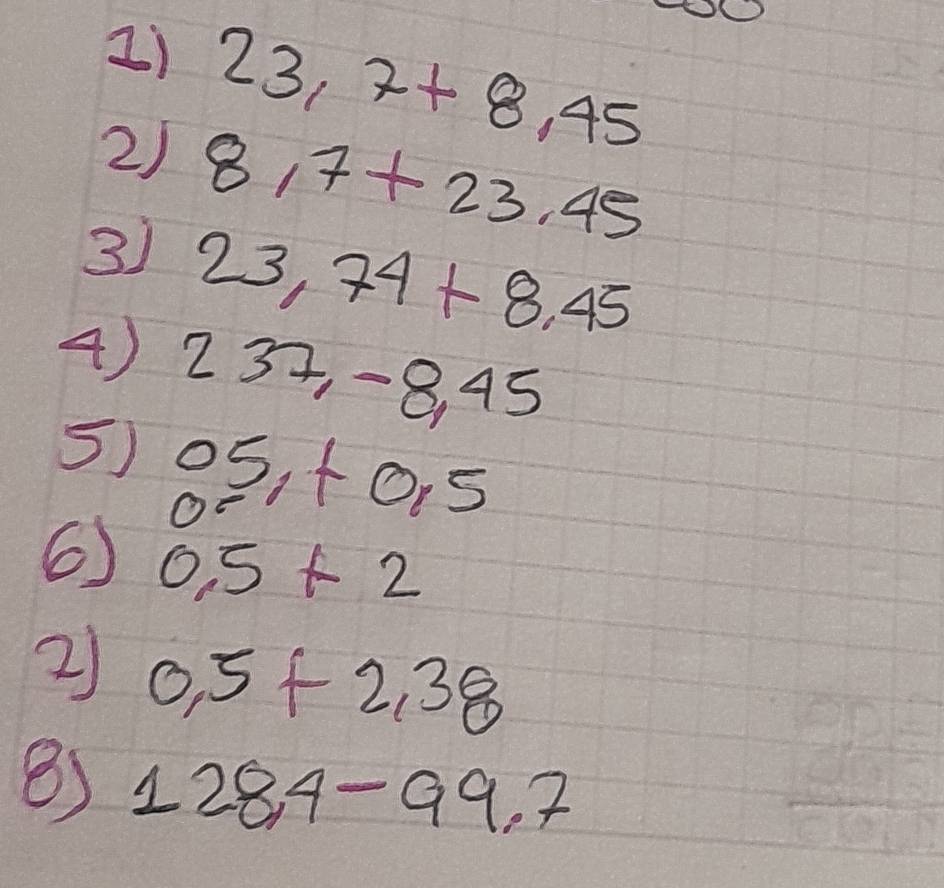 1) 23,7 + 8,45
2) 8,7 + 23,45
3) 23,74 + 8,45
4) 237,-8,45
5) 05,+0,5
6) 0,5 + 2
7) 0,5 + 2,38
8) 128,4 - 99,7